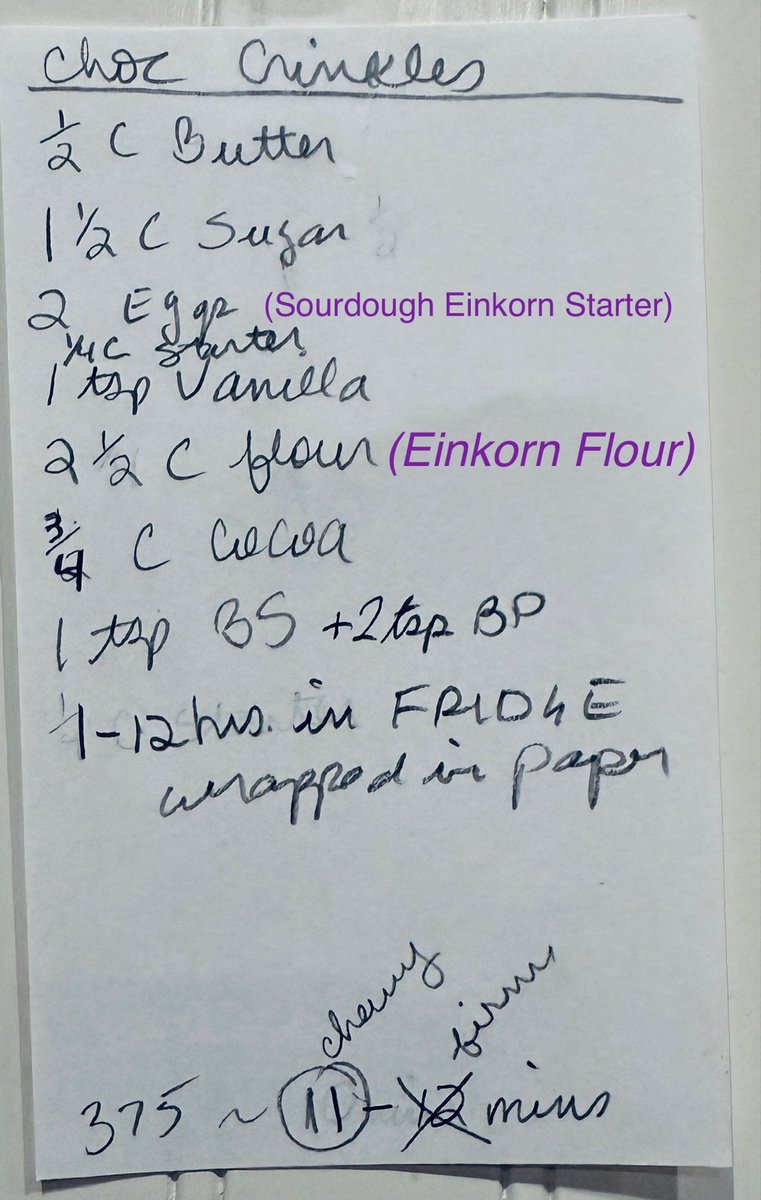 Choc Crinkles
1/2 C Butter
1 1/2 C Sugar
2 Eggs (Sourdough Einkorn Starter)
1/4 C Starter
1 tsp Vanilla
2 1/2 C flour (Einkorn Flour)
3/4 C Cocoa
1 tsp BS + 2 tsp BP
1-12 hrs. in FRIDGE
wrapped in paper
chewy firm
375 ~ 11-12 mins